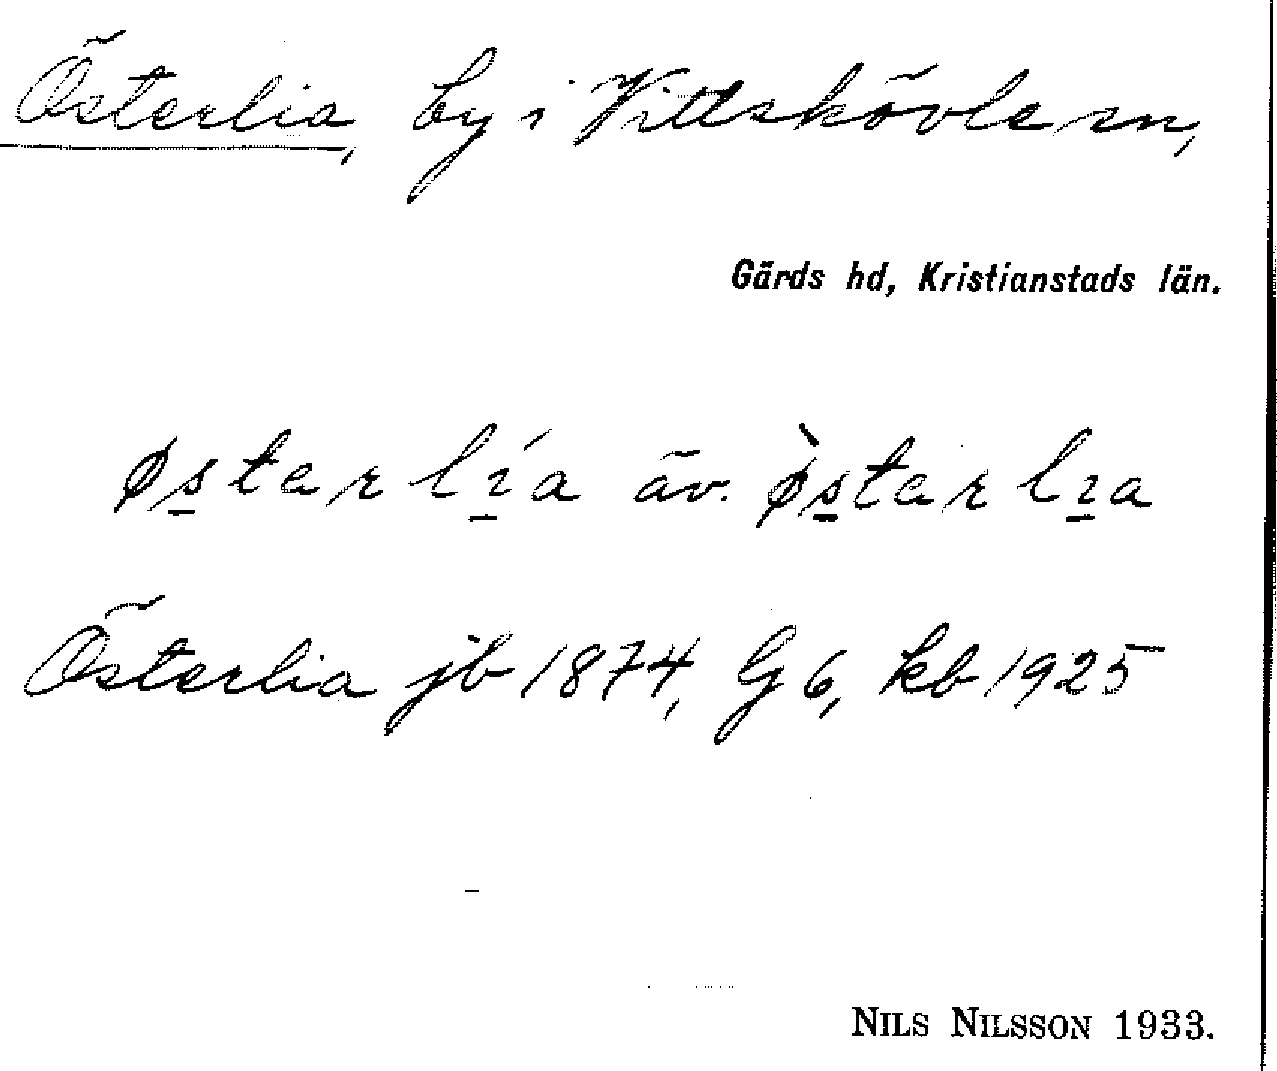 Österlia, by i Vittskövle sn,
Gärds hd, Kristianstads län.
øs̲tarlı̲́a äv. ø̀s̲tarlı̲a
Österlia jb 1874, G 6, kb 1925
NILS NILSSON 1933.